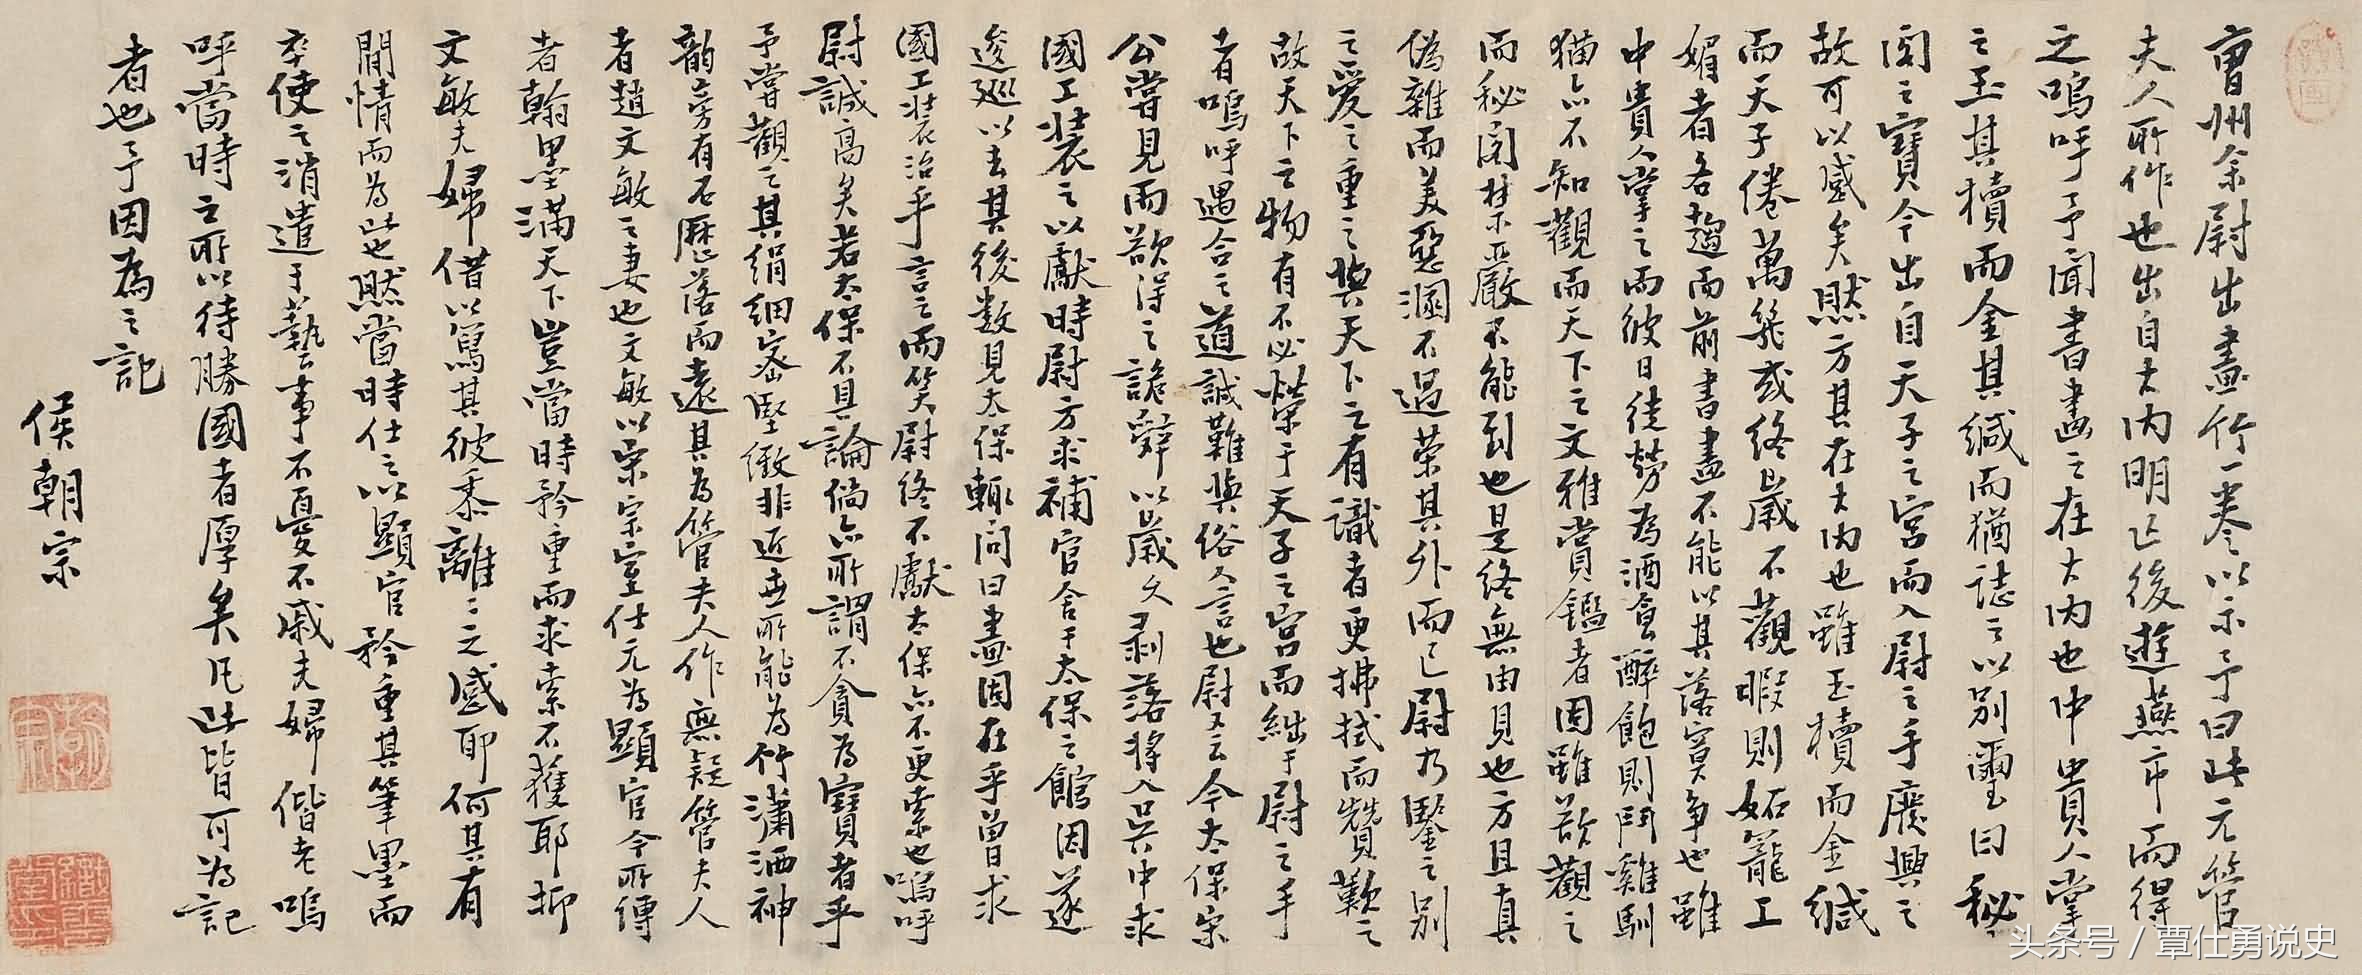 曹州余尉出畫竹一卷以示予曰此元管
夫人所作也出自大内明亡後遊燕市而得
之嗚呼予聞書畫之在大内也中貴人掌
之玉其犢而金其緘而猶誌之以別璽曰秘
閣之寶今出自天子之宮而入尉之手廢興之
故可以感矣然方其在大内也雖玉犢而金緘
而天子倦萬幾或終歲不觀暇則妬寵工
媚者各趨而前書畫不能以其落寞爭也雖
中貴人掌之而彼日徒勞為酒食醉飽則鬥雞馴
猫亦不知觀而天下之文雅賞鑑者固雖欲觀之
而秘閣禁嚴不能到也是終無由見也方且真
偽雜而美惡溷不過榮其外而已尉乃鑒之别
之愛之重之與天下之有識者更拂拭而贊歎之
故天下之物有不必榮于天子之宮而絀于尉之手
者嗚呼遇合之道誠難與俗人言也尉又云今太保宋
公嘗見而欲得之詭辭以歲久剥落將入吳中求
國工裝之以獻時尉方求補官舍于太保之館因遂
逡巡以去其後数見太保輒问曰畫固在乎曽求
國工裝治乎言之而笑尉終不獻太保亦不更索也嗚呼
尉誠高矣若太保不具論倘亦所謂不貪為寶者乎
予嘗觀之其絹細密堅緻非近世所能為竹瀟洒神
韵旁有石歷落而遠其為管夫人作無疑管夫人
者趙文敏之妻也文敏以宋宗室仕元為顯官今所傳
者翰墨滿天下豈當時矜重而求索不獲耶抑
文敏夫婦借以寫其彼黍離之之感耶何其有
閒情而為此也然當時仕之以顯官矜重其筆墨而
卒使之消遣于藝事不憂不戚夫婦偕老嗚
呼當時之所以待勝國者厚矣凡此皆可為記
者也予因為之記
侯朝宗
头条号 / 覃仕勇说史